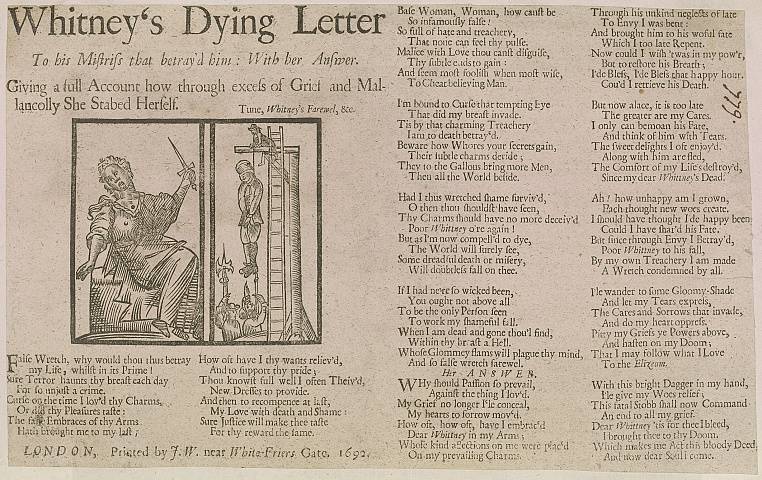 Whitney's Dying Letter
To his Mistriss that betray'd him: With her Answer.
Giving a full Account how through excess of Grief and Mal-
lancolly She Stabed Herself.
Tune, Whitney's Farewel, &c.
False Wretch, why would thou thus betray
my Life, whilst in its Prime!
Sure Terror haunts thy breast each day
For so unjust a crime.
Curse on the time I lov'd thy Charms,
Or did thy Pleasures taste:
The false Embraces of thy Arms
Hath brought me to my last;
How oft have I thy wants reliev'd,
And to support thy pride;
Thou knowst full well I often Theiv'd,
New Dresses to provide.
And then to recompence at last,
My Love with death and Shame:
Sure Justice will make thee taste
For thy reward the same.
LONDON, Printed by J.W. near White-Friers Gate. 1692.
Base Woman, Woman, how canst be
So infamously false!
So full of hate and treachery,
That none can feel thy pulse.
Malice with Love thou canst disguise,
Thy subtle ends to gain:
And seem most foolish when most wise,
To Cheat believing Man.
I'm bound to Curse that tempting Eye
That did my breast invade.
Tis by that charming Treachery
I am to death betray'd.
Beware how Whores your secrets gain,
Their subtle charms decide;
They to the Gallous bring more Men,
Then all the World beside.
Had I this wretched shame surviv'd,
O then thou shouldst have seen,
Thy Charms should have no more deceiv'd
Poor Whitney o're again!
But as I'm now compell'd to dye,
The World will surely see,
Some dreadful death or misery,
Will doubtless fall on thee.
If I had never so wicked been,
You ought not above all
To be the only Person seen
To work my shameful fall.
When I am dead and gone thou'l find,
Within thy breast a Hell.
Whose Glommey flams will plague thy mind,
And so false wretch farewel.
Her ANSWER.
WHy should Passion so prevail,
Against the thing I lov'd.
My Grief no longer I'le conceal,
My hearts to sorrow mov'd.
How oft, how oft, have I embrac'd
Dear Whitney in my Arms;
Whose kind affections on me were plac'd
On my prevailing Charms.
Through his unkind neglects of late
To Envy I was bent:
And brought him to his woful fate
Which I too late Repent.
Now could I wish 'twas in my pow'r,
But to restore his Breath;
I'de Bless, I'de Bless that happy hour.
Cou'd I retrieve his Death.
But now alace, it is too late
The greater are my Cares.
I only can bemoan his Fate,
And think of him with Tears.
The sweet delights I oft enjoy'd.
Along with him are fled,
The Comfort of my Life's destroy'd,
Since my dear Whitney's Dead.
Ah! how unhappy am I grown,
Each thought new woes create.
I should have thought I'de happy been
Could I have shar'd his Fate.
But since through Envy I Betray'd,
Poor Whitney to his fall,
By my own Treachery I am made
A Wretch condemned by all.
I'le wander to some Gloomy-Shade
And let my Tears express,
The Cares and Sorrows that invade,
And do my heart oppress.
Pitty my Griefs ye Powers above,
And hasten on my Doom;
That I may follow what I Love
To the Elizeum.
With this bright Dagger in my hand,
I'le give my Woes relief;
This fatal Stobb shall now Command
An end to all my grief.
Dear Whitney 'tis for thee I bleed,
I brought thee to thy Doom.
Which makes me Act this bloody Deed,
And now dear Soul I come.